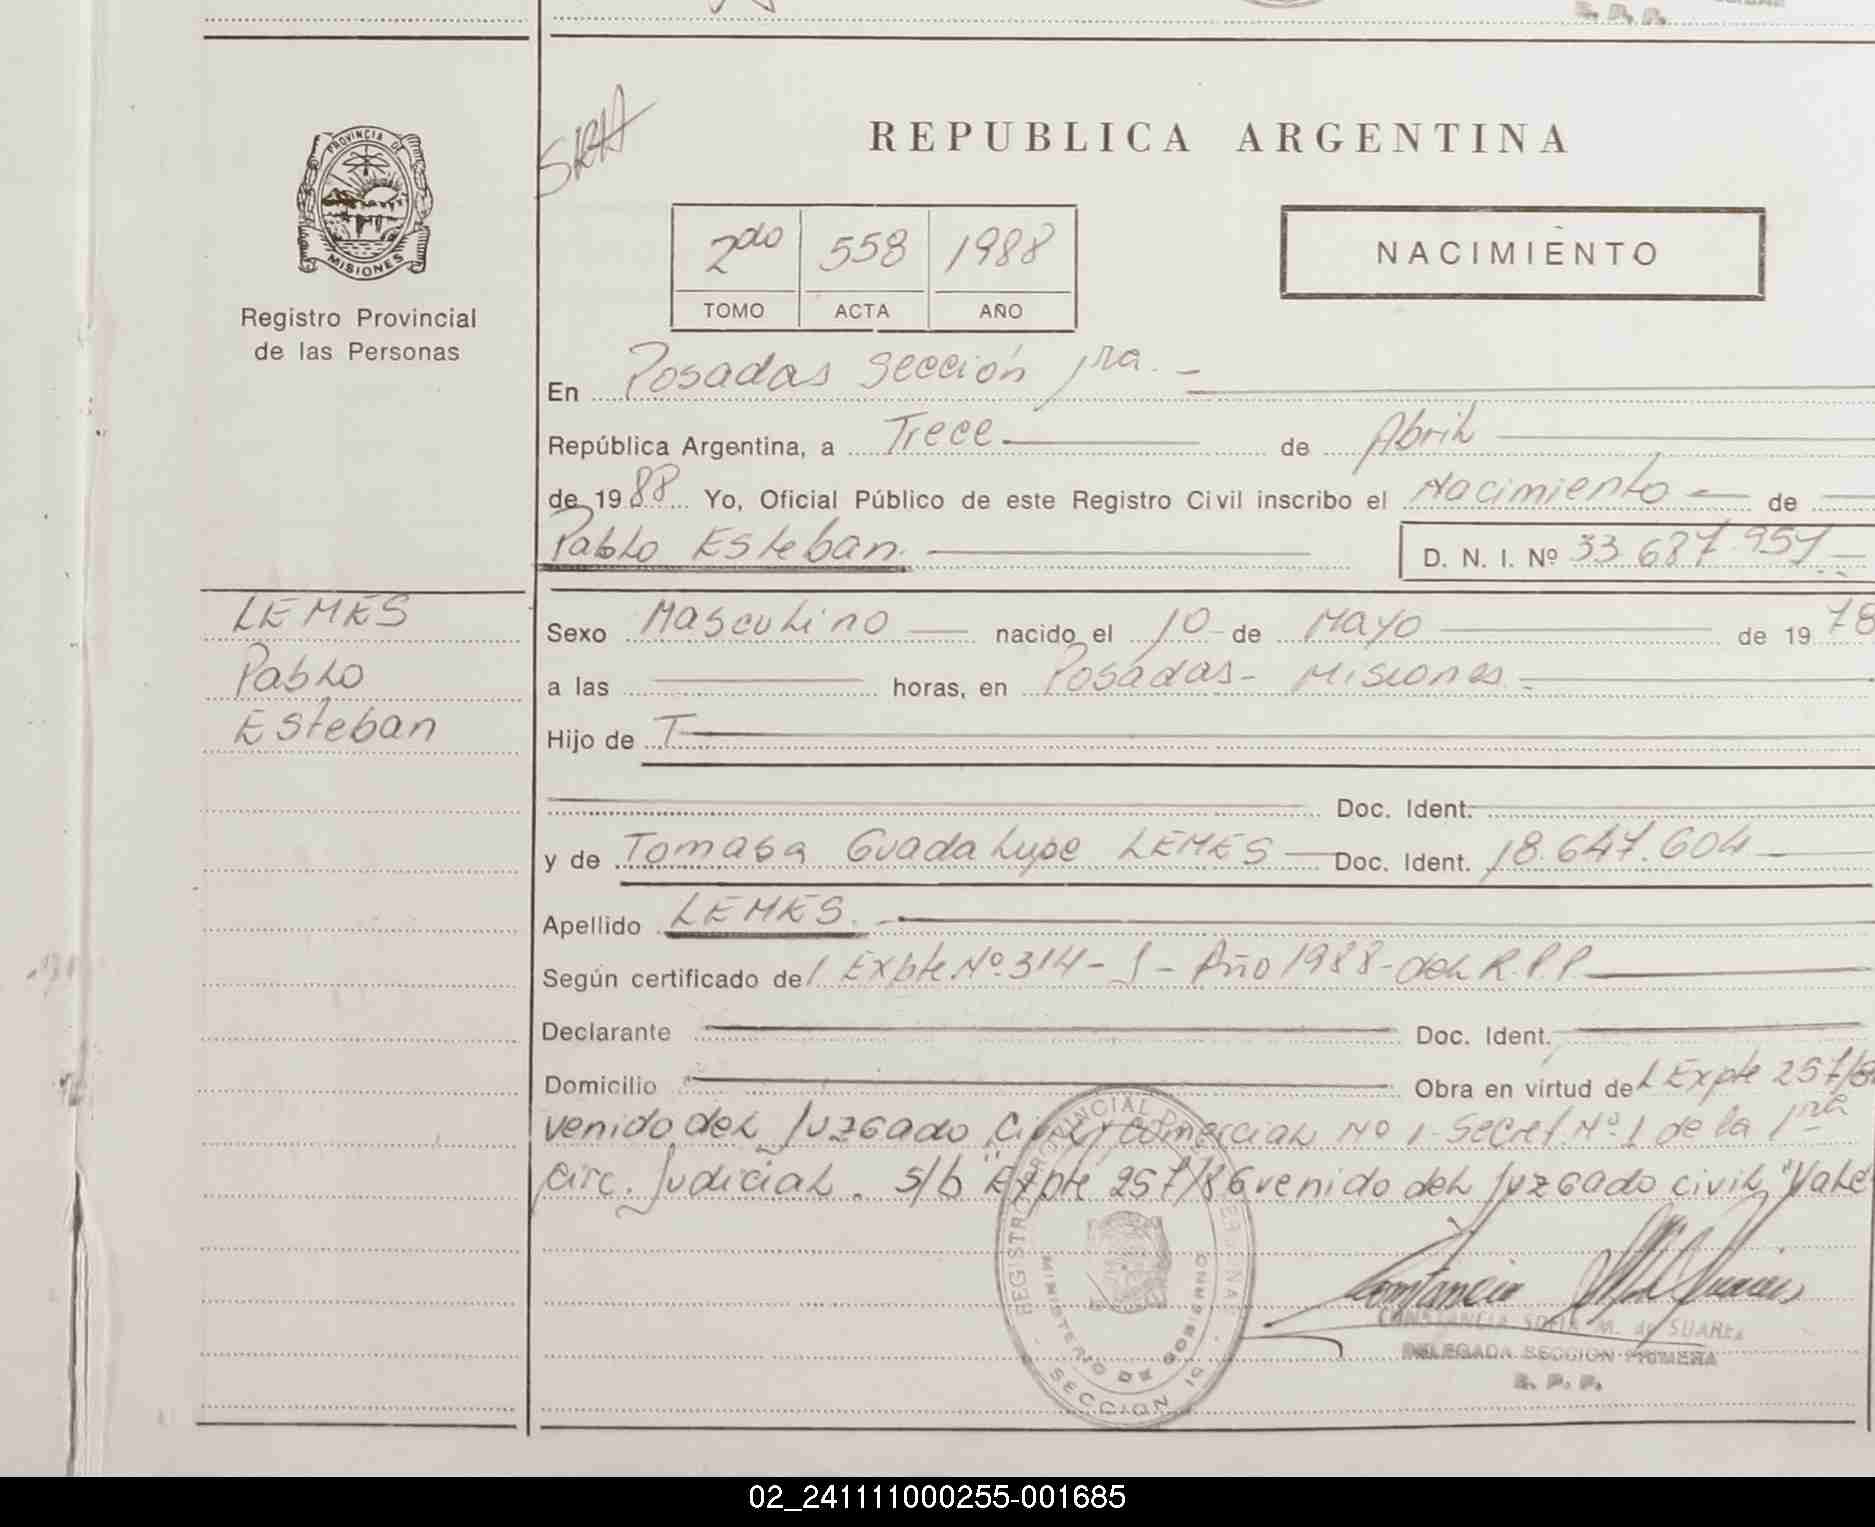 SRA
REPUBLICA ARGENTINA
PROVINCIA DE
MISIONES
2do 558 1988
TOMO ACTA AÑO
NACIMIENTO
Registro Provincial
de las Personas
En Posadas Sección 1ra. -
República Argentina, a Trece de Abril
de 1988 Yo, Oficial Público de este Registro Civil inscribo el Nacimiento - de
Pablo Esteban. D. N. I. Nº 33.687.957
LEMES
Pablo
Esteban
Sexo Masculino nacido el 10 de Mayo de 1978
a las horas, en Posadas - Misiones.
Hijo de T
Doc. Ident.
y de Tomasa Guadalupe LEMES Doc. Ident. 18.647.604
Apellido LEMES.
Según certificado de l Expte Nº 314 - J - Año 1988 - del R.P.P.
Declarante Doc. Ident.
Domicilio Obra en virtud de l Expte 257/8
venido del Juzgado Civil y Comercial Nº 1 - Secret. Nº 1 de la 1ra
Circ. Judicial. s/b "Expte 257/86 venido del Juzgado civil, "Vale
REGISTRO PROVINCIAL DE LAS PERSONAS
MINISTERIO DE GOBIERNO
SECCION 1a
CONSTANCIA SOFIA M. de SUAREZ
DELEGADA SECCION PRIMERA
R. P. P.
02_241111000255-001685